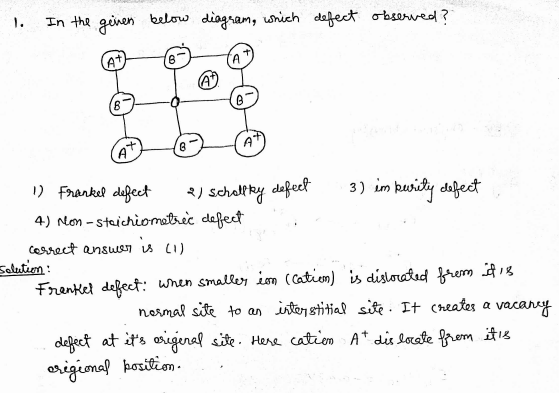 1. In the given below diagram, which defect observed?
A+ B- A+
A+
B- B-
A+ B- A+
1) Frankel defect 2) schollky defect 3) impurity defect
4) Non-stoichiometric defect
correct answer is (1)
Solution:
Frenkel defect: when smaller ion (cation) is dislocated from it is
normal site to an interstitial site. It creates a vacancy
defect at it's original site. Here cation A+ dislocate from it is
origional position.